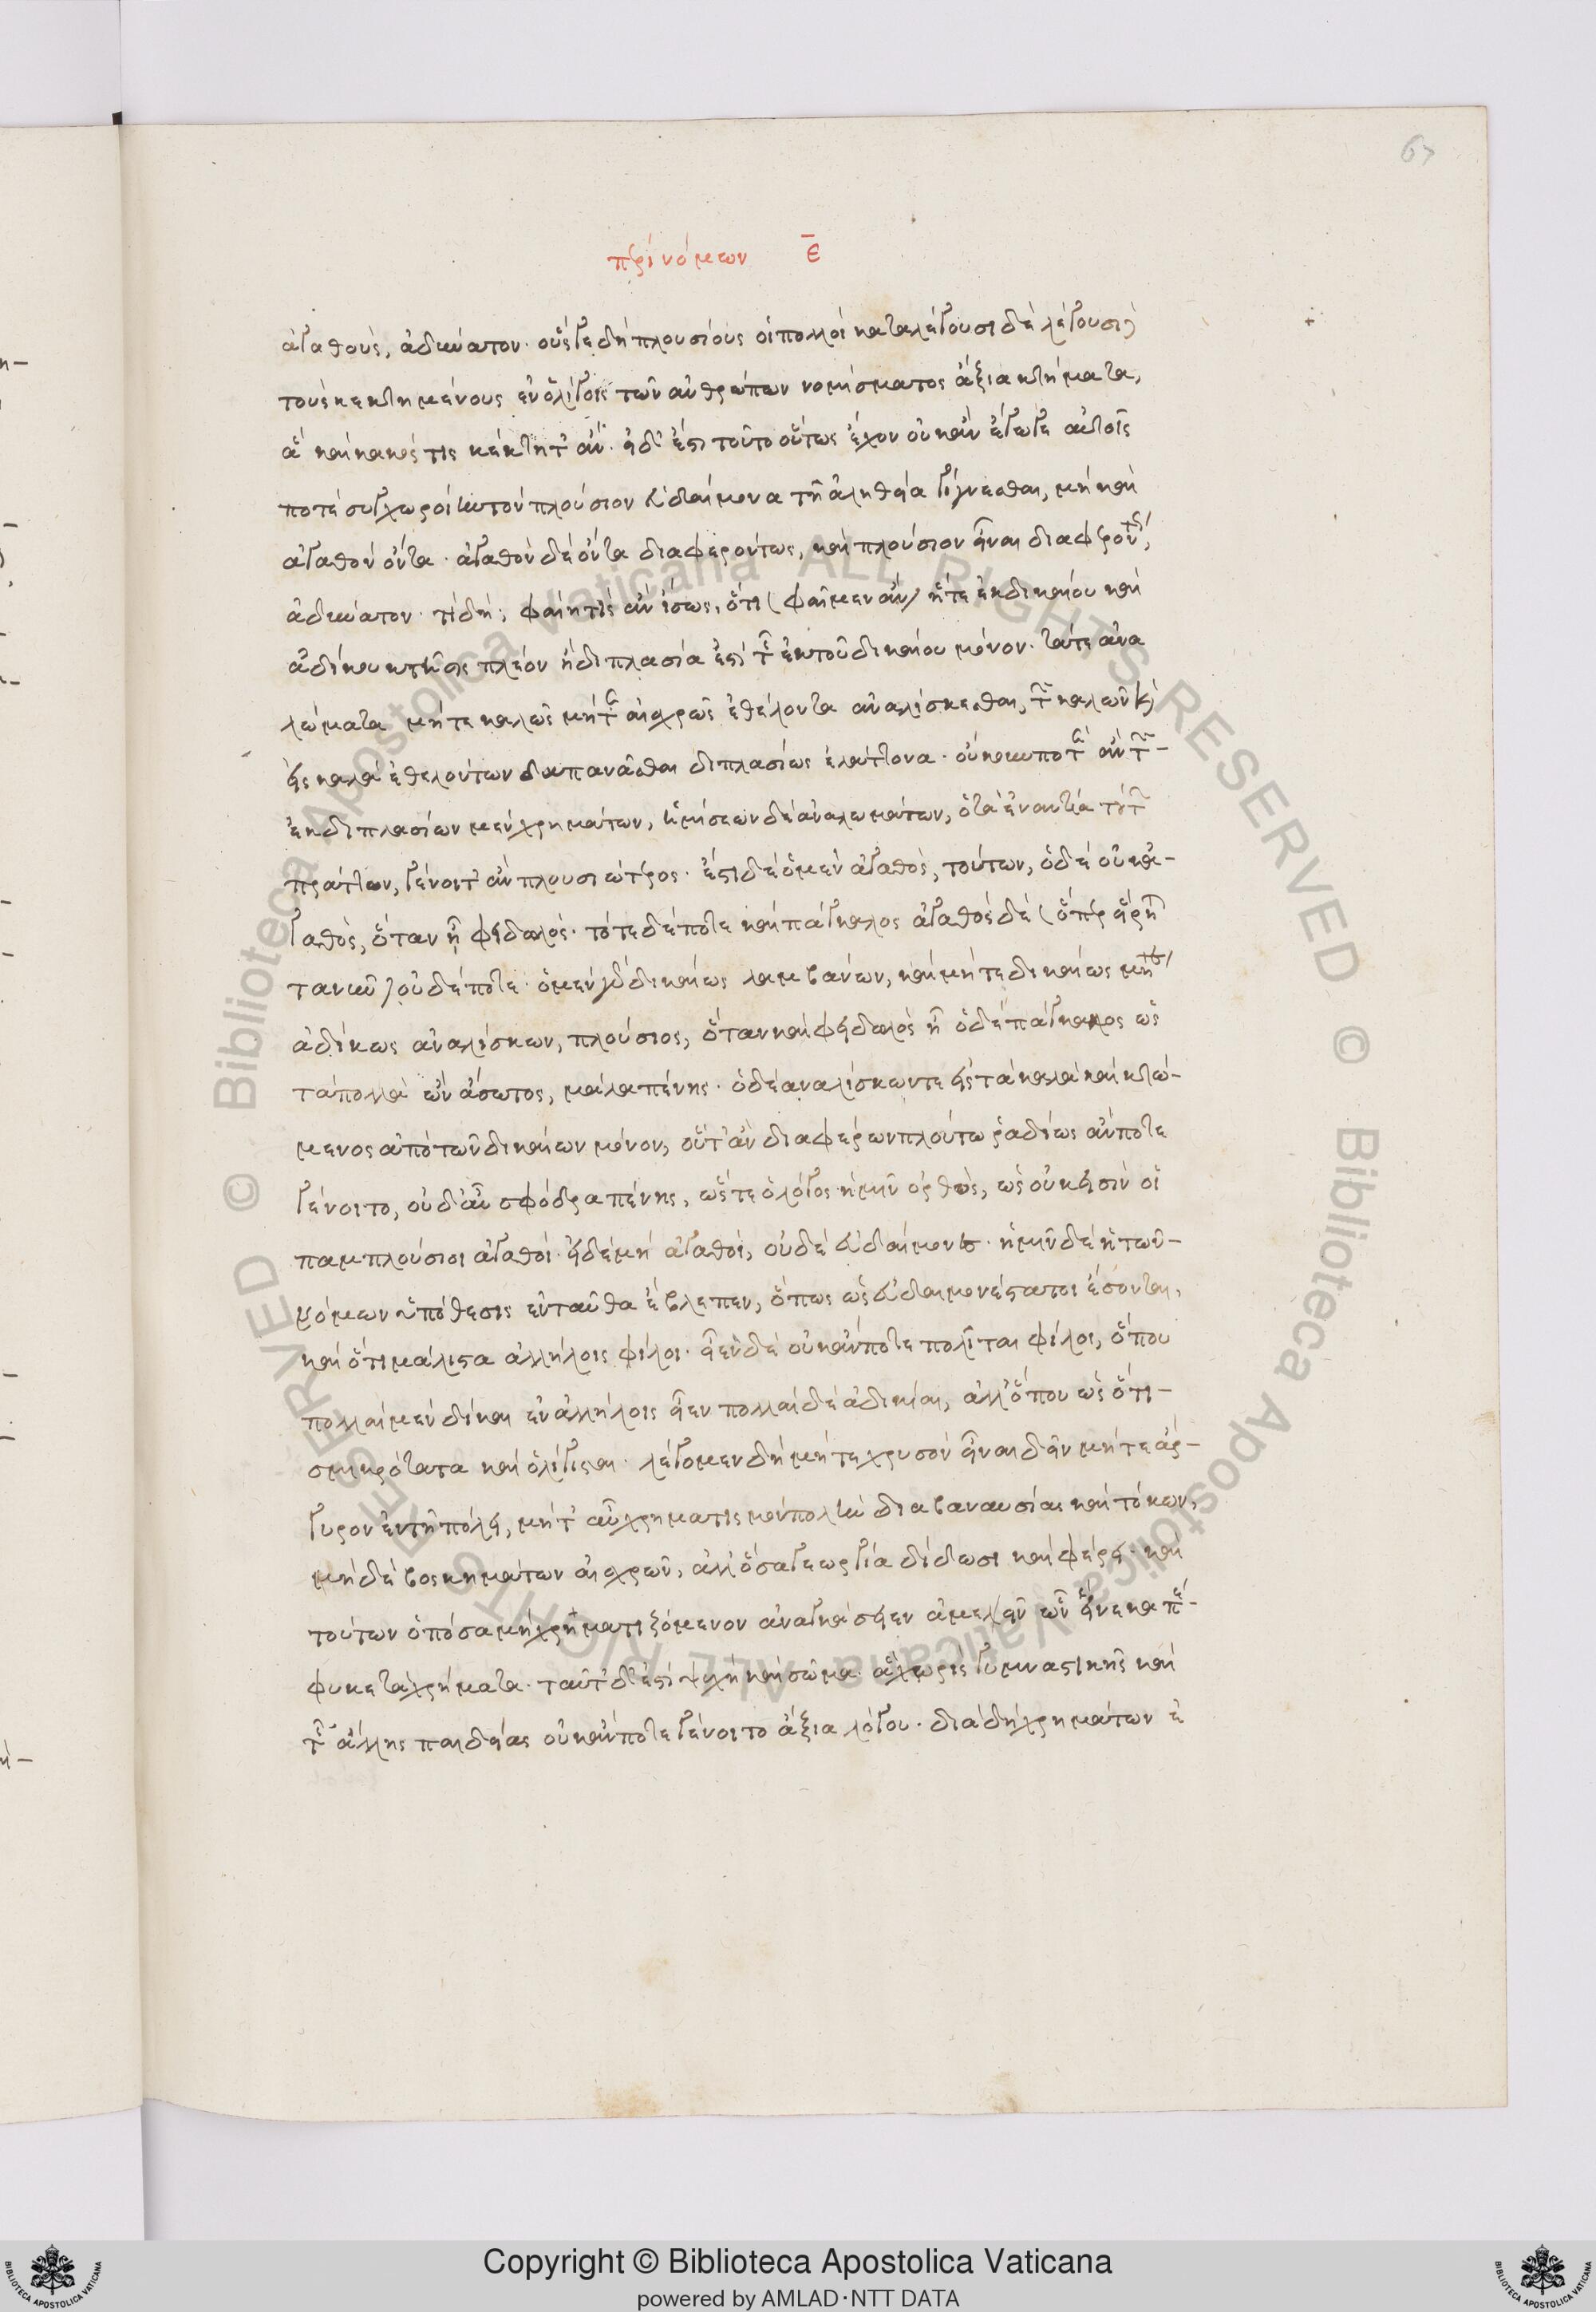 67
περὶ νόμων ε̄
ἀγαθοὺς, ἀδύνατον. οὕς γε δὴ πλουσίους οἱ πολλοὶ καταλέγουσι δὲ λέγουσι,
τοὺς κεκτημένους ἐν ὀλίγοις τῶν ἀνθρώπων νομίσματος ἄξια κτήματα,
ἃ καὶ κακός τις κέκτητ' ἄν. εἰ δ' ἔστι τοῦτο οὕτως ἔχον οὐκ ἂν ἔγωγε αὐτοῖς
ποτὲ συγχωροίην τὸν πλούσιον εὐδαίμονα τῇ ἀληθείᾳ γίγνεσθαι, μὴ καὶ
ἀγαθὸν ὄντα. ἀγαθὸν δὲ ὄντα διαφερόντως, καὶ πλούσιον εἶναι διαφερόντως,
ἀδύνατον. τί δὴ; φαίη τὶς ἂν ἴσως, ὅτι (φαῖμεν ἂν) ἥτε ἐκ δικαίου καὶ
ἀδίκου κτῆσις πλέον ἢ διπλασία ἐστὶ τῆς ἐκ τοῦ δικαίου μόνον. τά τε ἀνα
λώματα μήτε καλῶς μήτε αἰσχρῶς ἐθέλοντα ἀναλίσκεσθαι, τῶν καλῶν καὶ
εἰς καλὰ ἐθελόντων δαπανᾶσθαι διπλασίως ἐλάττονα. οὔκουν ποτὲ ἂν τῶν -
ἐκ διπλασίων μὲν χρημάτων, ἡμίσεων δὲ ἀναλωμάτων, ὁ τὰ ἐναντία τούτων
πράττων, γένοιτ' ἂν πλουσιώτερος. ἔστι δὲ ὁ μὲν ἀγαθὸς, τούτων, ὁ δὲ οὐ κα-
γαθὸς, ὅταν ᾖ φειδωλός. τότε δέ ποτε καὶ πάγκακος ἀγαθὸς δὲ (ὅπερ εἴρη
ται νῦν) οὐδέποτε. ὁ μὲν γὰρ δικαίως λαμβάνων, καὶ μήτε δικαίως μήτε
ἀδίκως ἀναλίσκων, πλούσιος, ὅταν καὶ φειδωλὸς ᾖ ὁ δὲ πάγκακος ὡς
τὰ πολλὰ ὢν ἄσωτος, μάλα πένης. ὁ δὲ ἀναλίσκων τε εἰς τὰ καλὰ καὶ κτώ-
μενος ἀπὸ τῶν δικαίων μόνον, οὔτ' ἂν διαφέρων πλούτω ῥαδίως ἄν ποτε
γένοιτο, οὐδ' ἂν σφόδρα πένης, ὥστε ὁ λόγος ἡμῖν ὀρθὸς, ὡς οὐκ εἰσὶν οἱ
παμπλούσιοι ἀγαθοί. εἰ δὲ μὴ ἀγαθοὶ, οὐδὲ εὐδαίμονες. ἡμῖν δὲ ἡ τῶν -
νόμων ὑπόθεσις ἐνταῦθα ἔβλεπεν, ὅπως ὡς εὐδαιμονέστατοι ἔσονται,
καὶ ὅτι μάλιστα ἀλλήλοις φίλοι. εἶεν δὲ οὐκ ἄν ποτε πολῖται φίλοι, ὅπου
πολλαὶ μὲν δίκαι ἐν ἀλλήλοις εἶεν πολλαὶ δὲ ἀδικίαι, ἀλλ' ὅπου ὡς ὅτι -
σμικρότατα καὶ ὀλίγισται. λέγομεν δὴ μήτε χρυσὸν εἶναι δεῖν μήτε ἄρ-
γυρον ἐν τῇ πόλει, μήτ' αὖ χρηματισμὸν πολὺν διὰ βαναυσίας καὶ τόκων,
μηδὲ βοσκημάτων αἰσχρῶν, ἀλλ' ὅσα γεωργία δίδωσι καὶ φέρει. καὶ
τούτων ὁπόσα μὴ χρηματιζόμενον ἀναγκάσειεν ἀμελεῖν ὧν ἕνεκα πέ-
φυκε τὰ χρήματα. ταῦτ' δ' ἐστὶ ψυχὴ καὶ σῶμα. ἃ χωρὶς γυμναστικῆς καὶ
τῆς ἄλλης παιδείας οὐκ ἄν ποτε γένοιτο ἄξια λόγου. διὰ δὴ χρημάτων ἐ